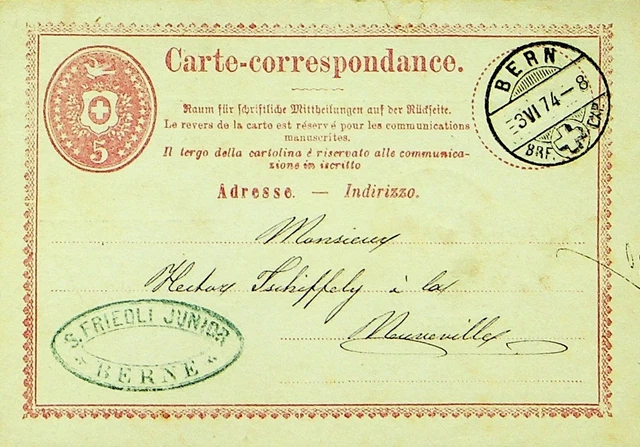 Carte-correspondance.
Raum für schriftliche Mittheilungen auf der Rückseite.
Le revers de la carte est réservé pour les communications
manuscrites.
Il tergo della cartolina è riservato alle communica-
zione in iscritto
Adresse. — Indirizzo.
5
BERN
3 VI 74 – 8
BRF. EXP.
Monsieur
Hector Tschiffely à la
Neuveville
S. FRIEDLI JUNIOR
BERNE